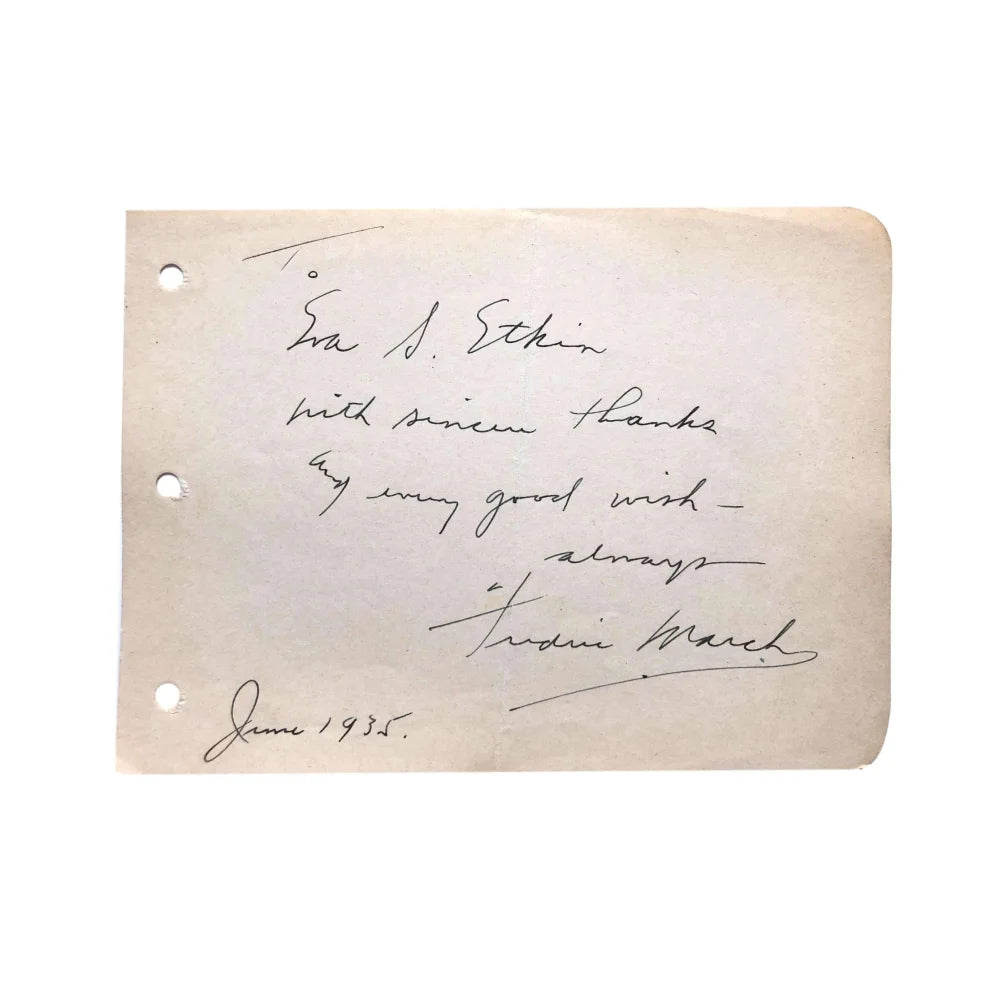 To
Eva S. Etkin
with sincere thanks
and every good wish —
always
Fredric March
June 1935.